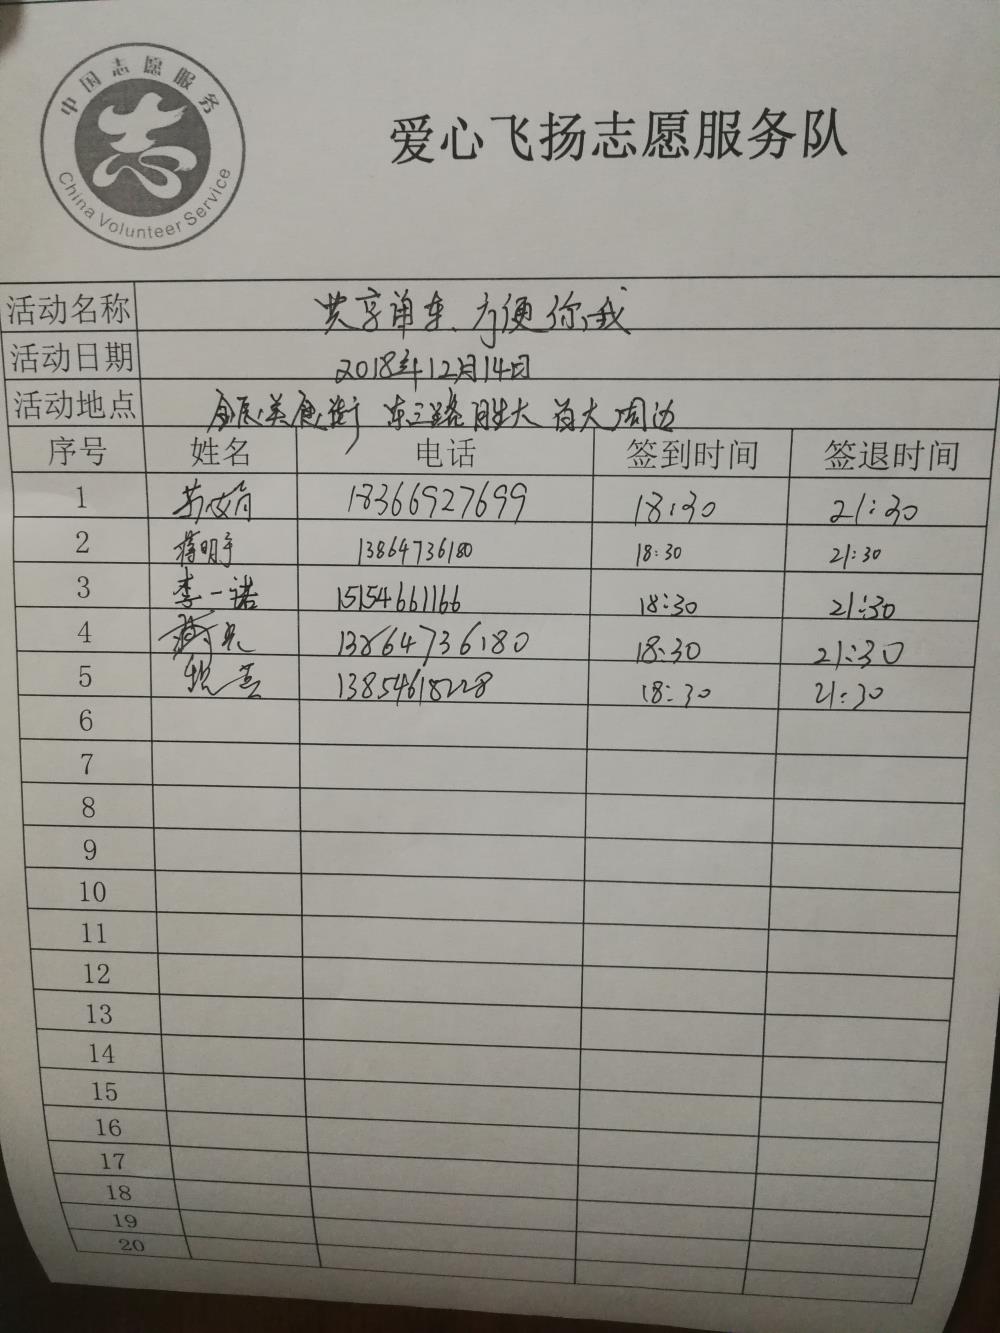 中国志愿服务
China Volunteer Service
爱心飞扬志愿服务队
活动名称 共享单车、方便你、我
活动日期 2018年12月14日
活动地点 美食街 东三路 胜大 周边
序号 姓名 电话 签到时间 签退时间
1 18366927699 18:30 21:30
2 蒋明宇 13864736180 18:30 21:30
3 李一诺 15154661166 18:30 21:30
4 13864736180 18:30 21:30
5 13854618228 18:30 21:30
6
7
8
9
10
11
12
13
14
15
16
17
18
19
20